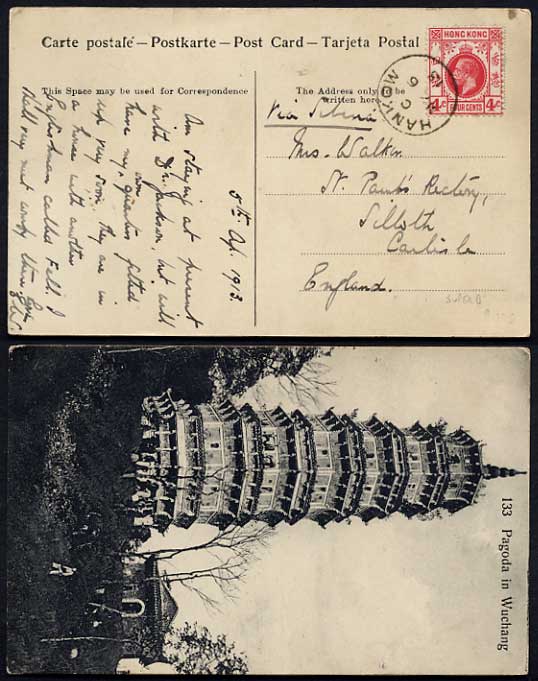 Carte postale – Postkarte – Post Card – Tarjeta Postal
This Space may be used for Correspondence
The Address only to be
written here
HONG KONG
4c 4c
FOUR CENTS
HANKOW
Via Siberia
Mrs. Walker
St. Paul's Rectory,
Silloth
Carlisle
England.
5th Ap. 1913.
Am staying at present
with Dr. Jackson, but will
have my own quarters fitted
up very soon. They are in
a house with another
Englishman called Fell. I
shall very much enjoy them
133 Pagoda in Wuchang